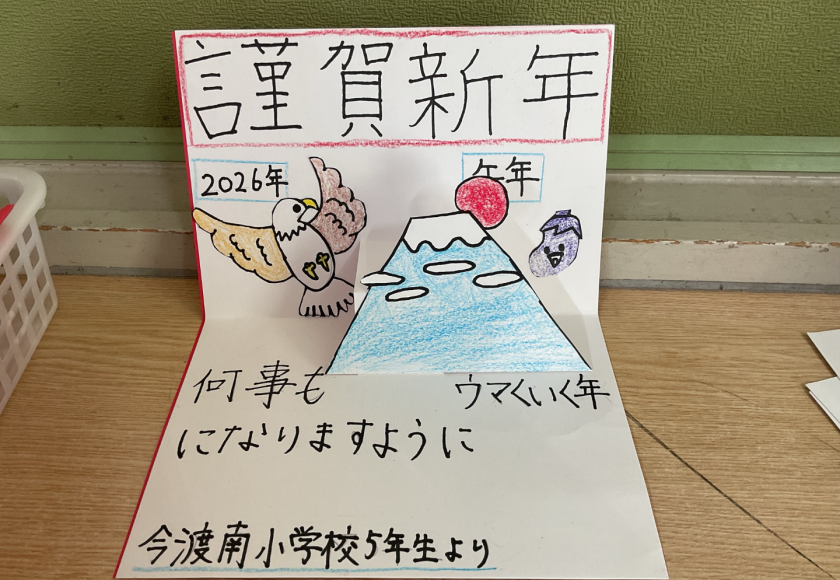 謹賀新年
2026年
午年
何事も ウマくいく年
になりますように
今渡南小学校5年生より